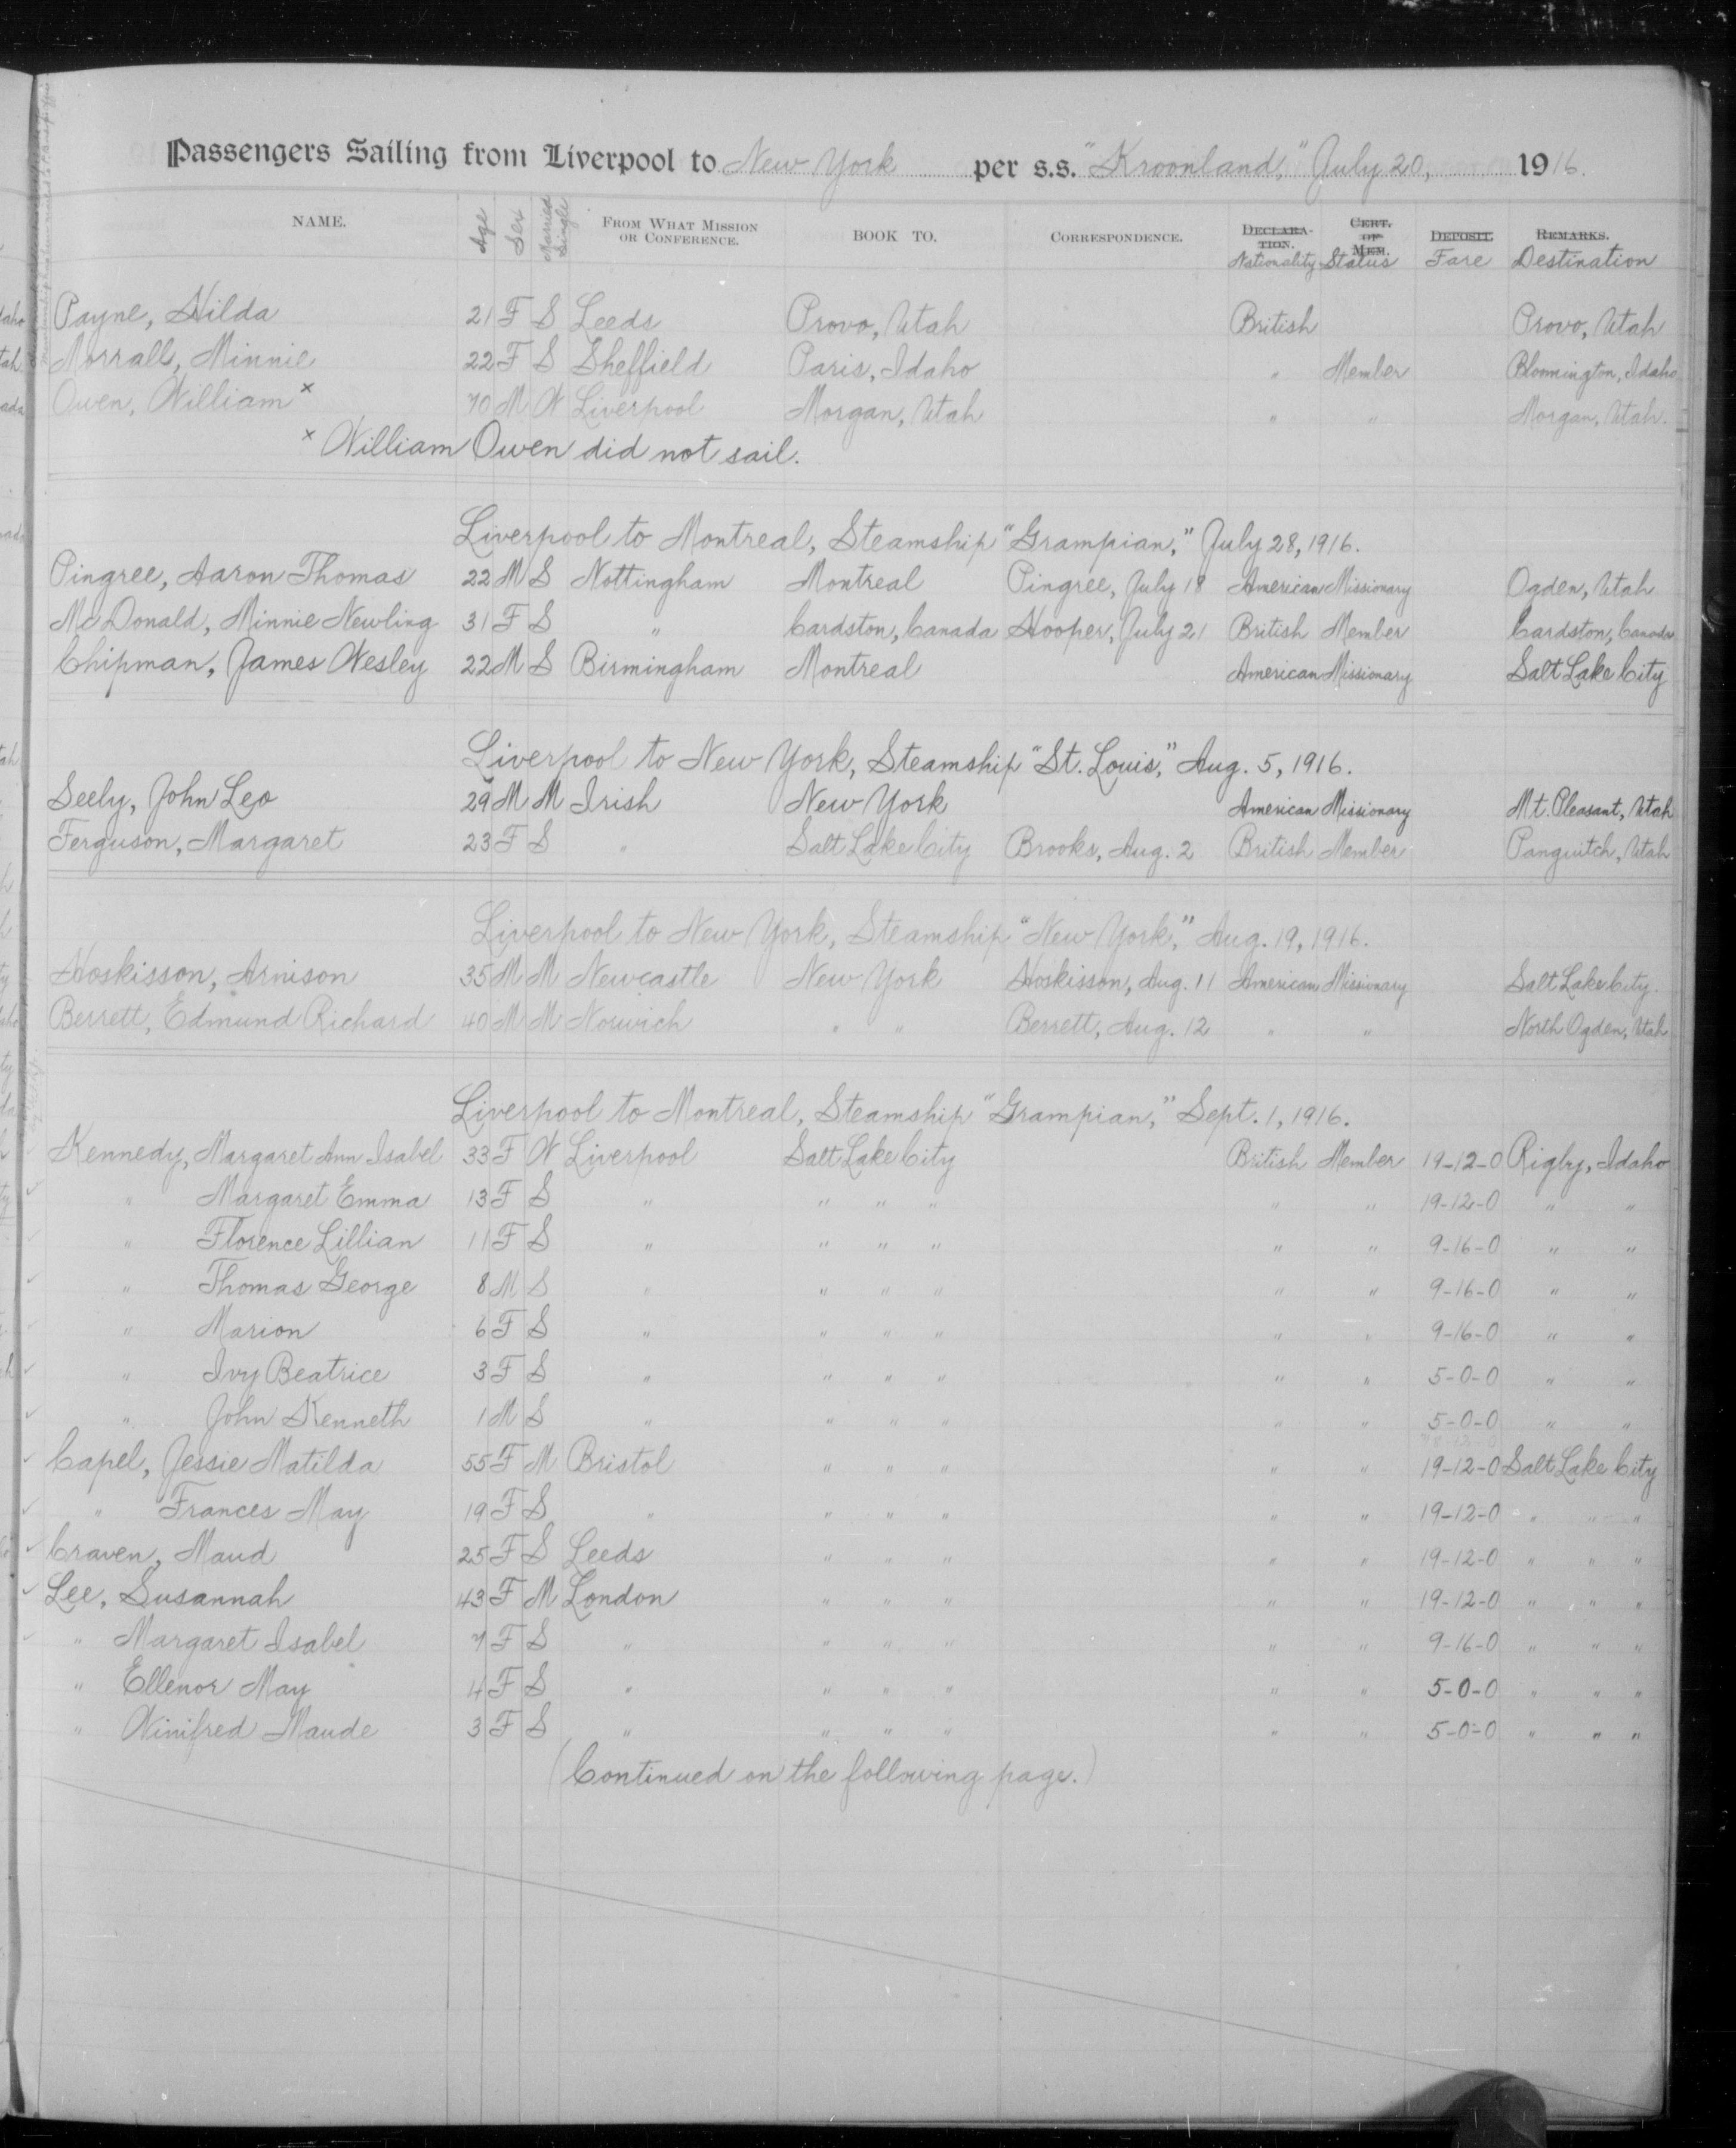 Passengers Sailing from Liverpool to New York per s.s. "Kroonland," July 20, 1916.
NAME. Age Sex Married Single FROM WHAT MISSION OR CONFERENCE. BOOK TO. CORRESPONDENCE. DECLARATION. Nationality CERT. OF MEM. Status DEPOSIT. Fare REMARKS. Destination
Payne, Hilda 21 F S Leeds Provo, Utah British Provo, Utah
Morrall, Minnie 22 F S Sheffield Paris, Idaho " Member Bloomington, Idaho
Owen, William x 70 M W Liverpool Morgan, Utah " " Morgan, Utah.
x William Owen did not sail.
Liverpool to Montreal, Steamship "Grampian," July 28, 1916.
Pingree, Aaron Thomas 22 M S Nottingham Montreal Pingree, July 18 American Missionary Ogden, Utah
McDonald, Minnie Newling 31 F S " Cardston, Canada Hooper, July 21 British Member Cardston, Canada
Chipman, James Wesley 22 M S Birmingham Montreal American Missionary Salt Lake City
Liverpool to New York, Steamship "St. Louis," Aug. 5, 1916.
Seely, John Leo 29 M M Irish New York American Missionary Mt. Pleasant, Utah
Ferguson, Margaret 23 F S " Salt Lake City Brooks, Aug. 2 British Member Panguitch, Utah
Liverpool to New York, Steamship "New York," Aug. 19, 1916.
Hoskisson, Arnison 35 M M Newcastle New York Hoskisson, Aug. 11 American Missionary Salt Lake City.
Berrett, Edmund Richard 40 M M Norwich " " Berrett, Aug. 12 " " North Ogden, Utah
Liverpool to Montreal, Steamship "Grampian," Sept. 1, 1916.
Kennedy, Margaret Ann Isabel 33 F W Liverpool Salt Lake City British Member 19-12-0 Rigby, Idaho
" Margaret Emma 13 F S " " " " " " 19-12-0 " "
" Florence Lillian 11 F S " " " " " " 9-16-0 " "
" Thomas George 8 M S " " " " " " 9-16-0 " "
" Marion 6 F S " " " " " " 9-16-0 " "
" Ivy Beatrice 3 F S " " " " " " 5-0-0 " "
" John Kenneth 1 M S " " " " " " 5-0-0 " "
Capel, Jessie Matilda 55 F M Bristol " " " " " 19-12-0 Salt Lake City
" Frances May 19 F S " " " " " " 19-12-0 " " "
Craven, Maud 25 F S Leeds " " " " " 19-12-0 " " "
Lee, Susannah 43 F M London " " " " " 19-12-0 " " "
" Margaret Isabel 7 F S " " " " " " 9-16-0 " " "
" Ellenor May 4 F S " " " " " " 5-0-0 " " "
" Winifred Maude 3 F S " " " " " " 5-0-0 " " "
(Continued on the following page.)